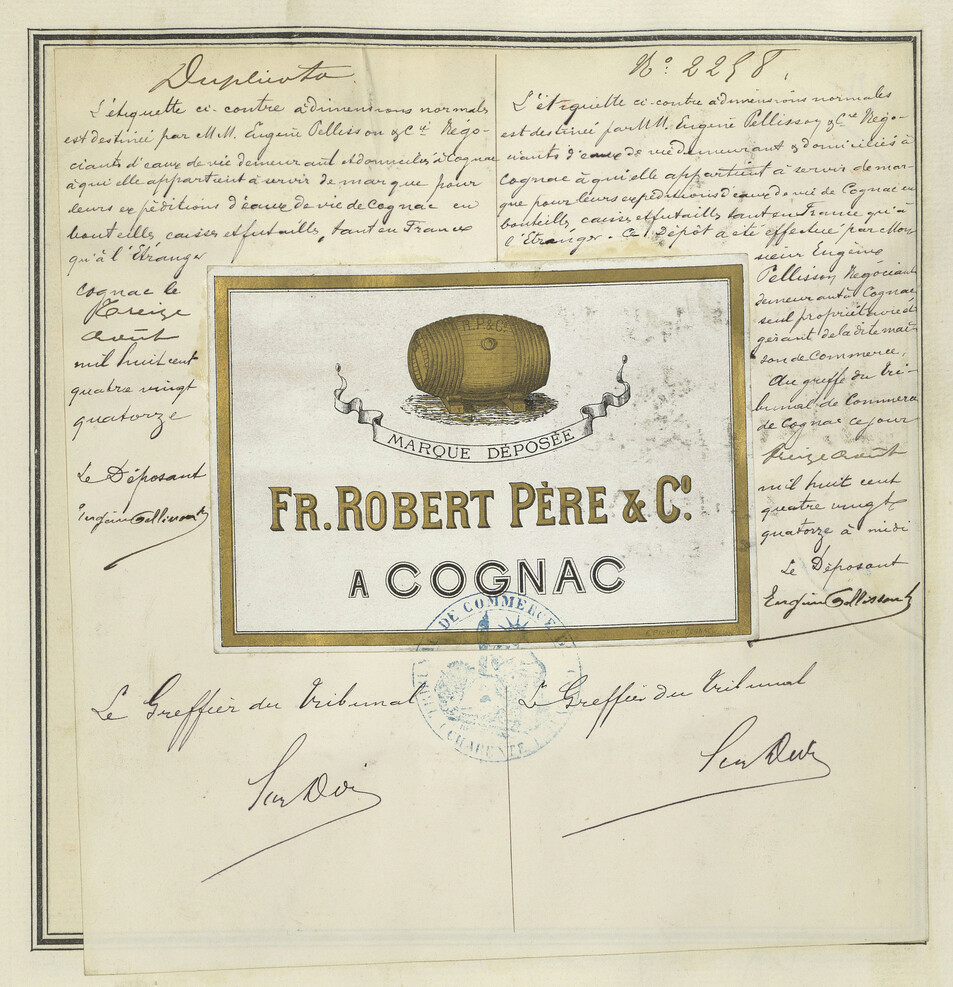 Duplicata
L'étiquette ci-contre à dimensions normales
est destinée par MM. Eugène Pellisson & Cie Négo-
ciants d'eaux de vie demeurant et domiciliés à Cognac
à qui elle appartient à servir de marque pour
leurs expéditions d'eaux de vie de Cognac en
bouteilles, caisses et futailles, tant en France
qu'à l'Étranger
Cognac le
Treize
Août
mil huit cent
quatre vingt
quatorze
Le Déposant
Eugène Pellisson
Le Greffier du Tribunal
No. 2258.
L'étiquette ci-contre à dimensions normales
est destinée par MM. Eugène Pellisson & Cie Négo-
ciants d'eaux de vie demeurant & domiciliés à
Cognac à qui elle appartient à servir de mar-
que pour leurs expéditions d'eaux de vie de Cognac en
bouteilles, caisses et futailles tant en France qu'à
l'Étranger. Ce Dépôt a été effectué par Mon-
sieur Eugène
Pellisson Négociant
demeurant à Cognac
seul propriétaire et
gérant de la dite mai-
son de Commerce.
Au greffe du Tri-
bunal de Commerce
de Cognac ce jour
Treize Août
mil huit cent
quatre vingt
quatorze à midi
Le Déposant
Eugène Pellisson
Le Greffier du Tribunal
R.P.&Co
MARQUE DÉPOSÉE
FR. ROBERT PÈRE & Co.
A COGNAC
DE COMMERCE
CHARENTE